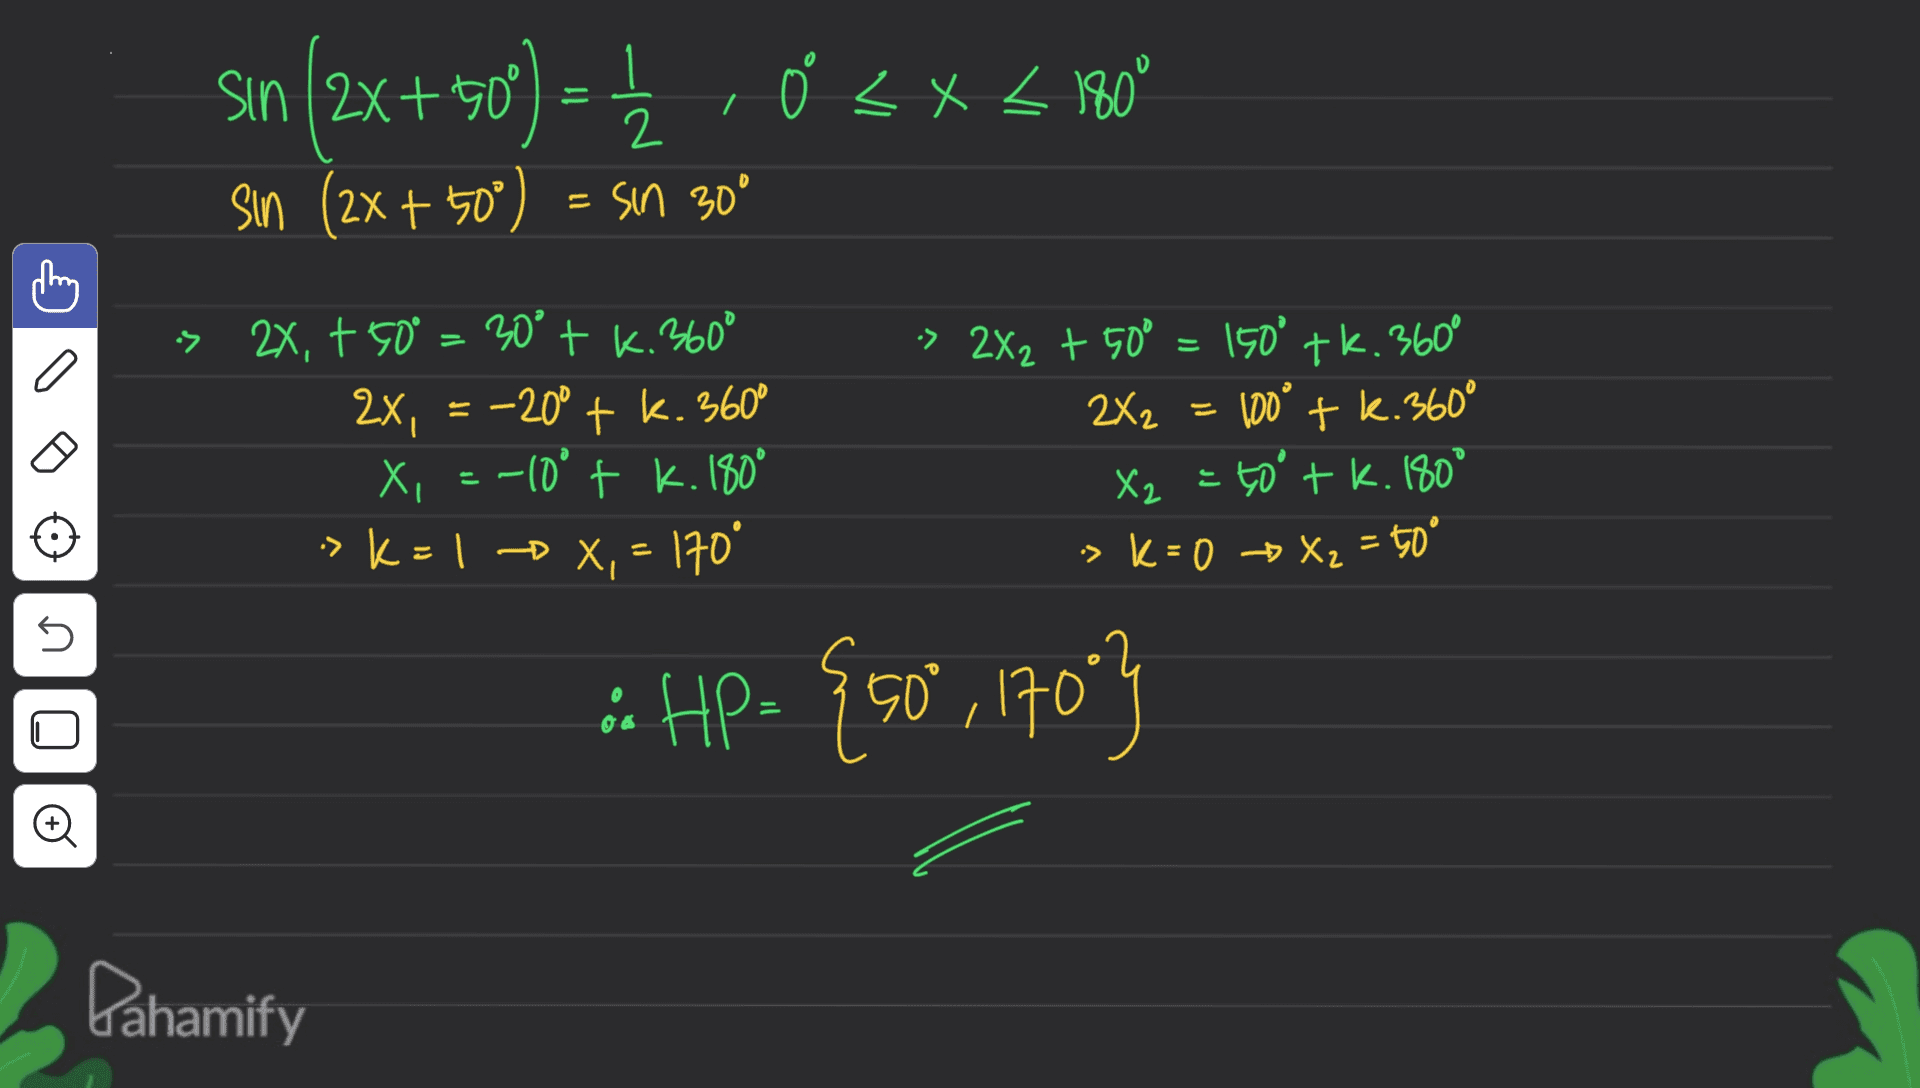 sin (2x + 50°) = 1/2 , 0° ≤ x ≤ 180°
sin (2x + 50°) = sin 30°
∴> 2x₁ + 50° = 30° + k.360°
2x₁ = -20° + k.360°
x₁ = -10° + k.180°
∴> k = 1 → x₁ = 170°
∴> 2x₂ + 50° = 150° + k.360°
2x₂ = 100° + k.360°
x₂ = 50° + k.180°
∴> k = 0 → x₂ = 50°
∴ HP = {50°, 170°}
Pahamify